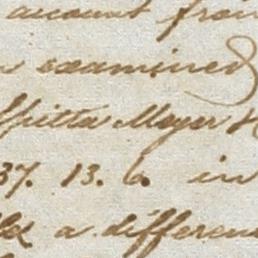 account from
examined
Spitta Meyer &
37. 13. 6. in
a differen